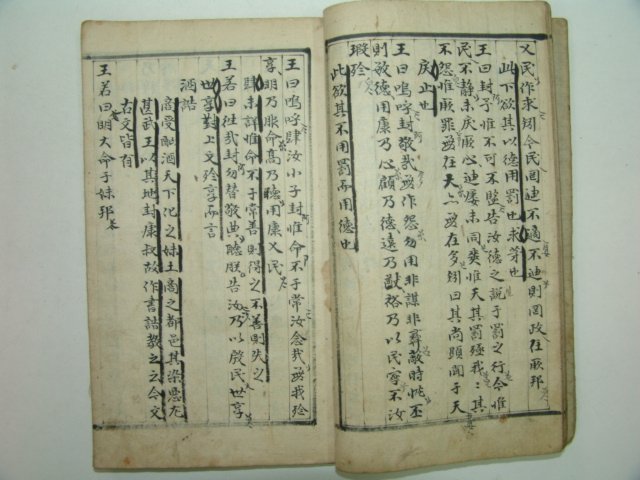 乂民作求矧今民罔迪不適不迪則罔政在厥邦
此下欲其以德用罰也求等也
王曰封予惟不可不監告汝德之說于罰之行今惟
民不靜未戾厥心迪屢未同爽惟天其罰殛我〻其
不怨惟厥罪無在大亦無在多矧曰其尚顯聞于天
戾止也
王曰嗚呼封敬哉無作怨勿用非謀非彝蔽時忱丕
則敏德用康乃心顧乃德遠乃猷裕乃以民寧不汝
瑕殄
此欲其不用罰而用德也
王曰嗚呼肆汝小子封惟命不于常汝念哉無我殄
享明乃服命高乃聽用康乂民
肆未詳惟命不于常善則得之不善則失之
王若曰往哉封勿替敬典聽朕告汝乃以殷民世享
世享對上文殄享而言
酒誥
商受酗酒天下化之妹土商之都邑其染惡尤
甚武王以其地封康叔故作書誥教之云今文
古文皆有
王若曰明大命于妹邦